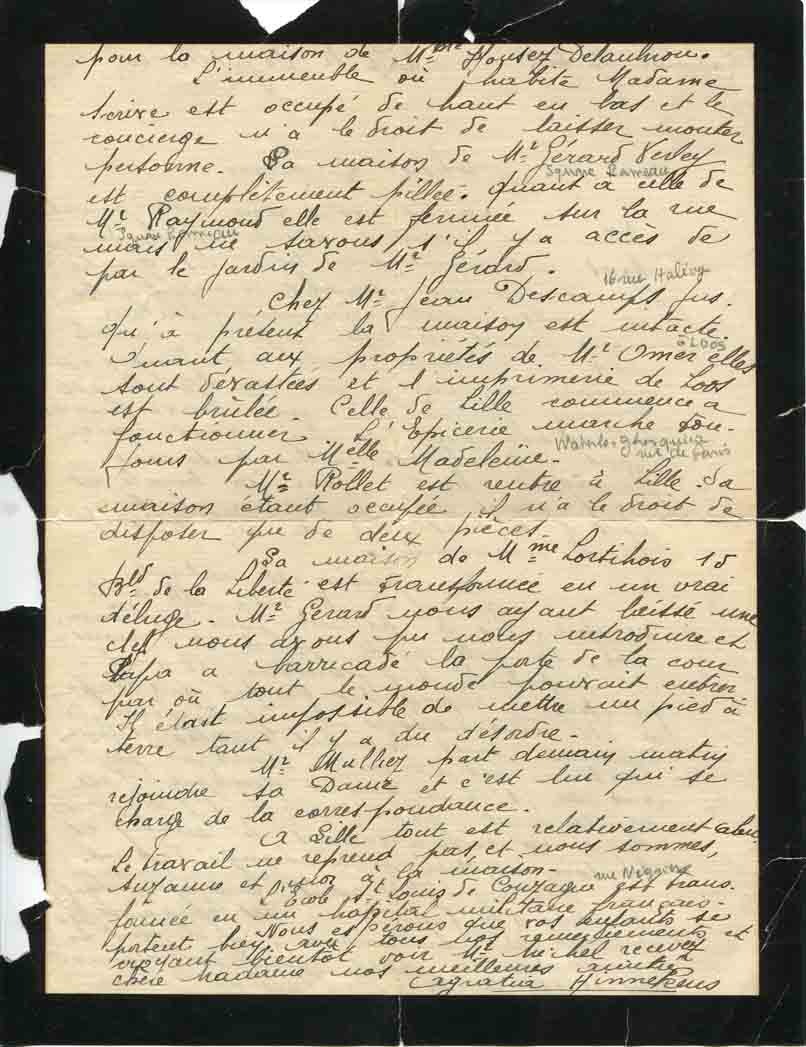 pour la maison de Mme Housez Delaunou.
L'immeuble où habite Madame
Scrive est occupé de haut en bas et le
concierge n'a le droit de laisser monter
personne. La maison de Mr Gérard Verley
Square Rameau
est complètement pillée. Quant à celle de
Mr Raymond elle est fermée sur la rue
Square Rameau
mais ne savons s'il y a accès de
par le jardin de Mr Gérard.
16 rue Halévy
Chez Mr Jean Descamps jus-
qu'à présent la maison est intacte.
à Loos
Quant aux propriétés de Mr Omer elles
sont dévastées et l'imprimerie de Loos
est brûlée. Celle de Lille commence à
fonctionner. L'Epicerie marche tou-
rue de Paris
jours par Melle Madeleine.
Mr Rollet est rentré à Lille. Sa
maison étant occupée il n'a le droit de
disposer que de deux pièces.
La maison de Mme Lortihois 15
Bld de la Liberté est transformée en un vrai
déluge. Mr Gérard nous ayant laissé une
clef nous avons pu nous introduire et
Papa a barricadé la porte de la cour
par où tout le monde pouvait entrer.
Il était impossible de mettre un pied à
terre tant il y a du désordre.
Mr Mulliez part demain matin
rejoindre sa Dame et c'est lui qui se
charge de la correspondance.
A Lille tout est relativement calme.
Le travail ne reprend pas et nous sommes,
Suzanne et moi à la maison.
rue Négrier
L'Ecole St Louis de Gonzague est trans-
formée en un hôpital militaire français.
Nous espérons que vos enfants se
portent bien avec tous nos remerciements et
croyant bientôt voir Mr Michel recevez
chère Madame nos meilleures amitiés
Hinnekens